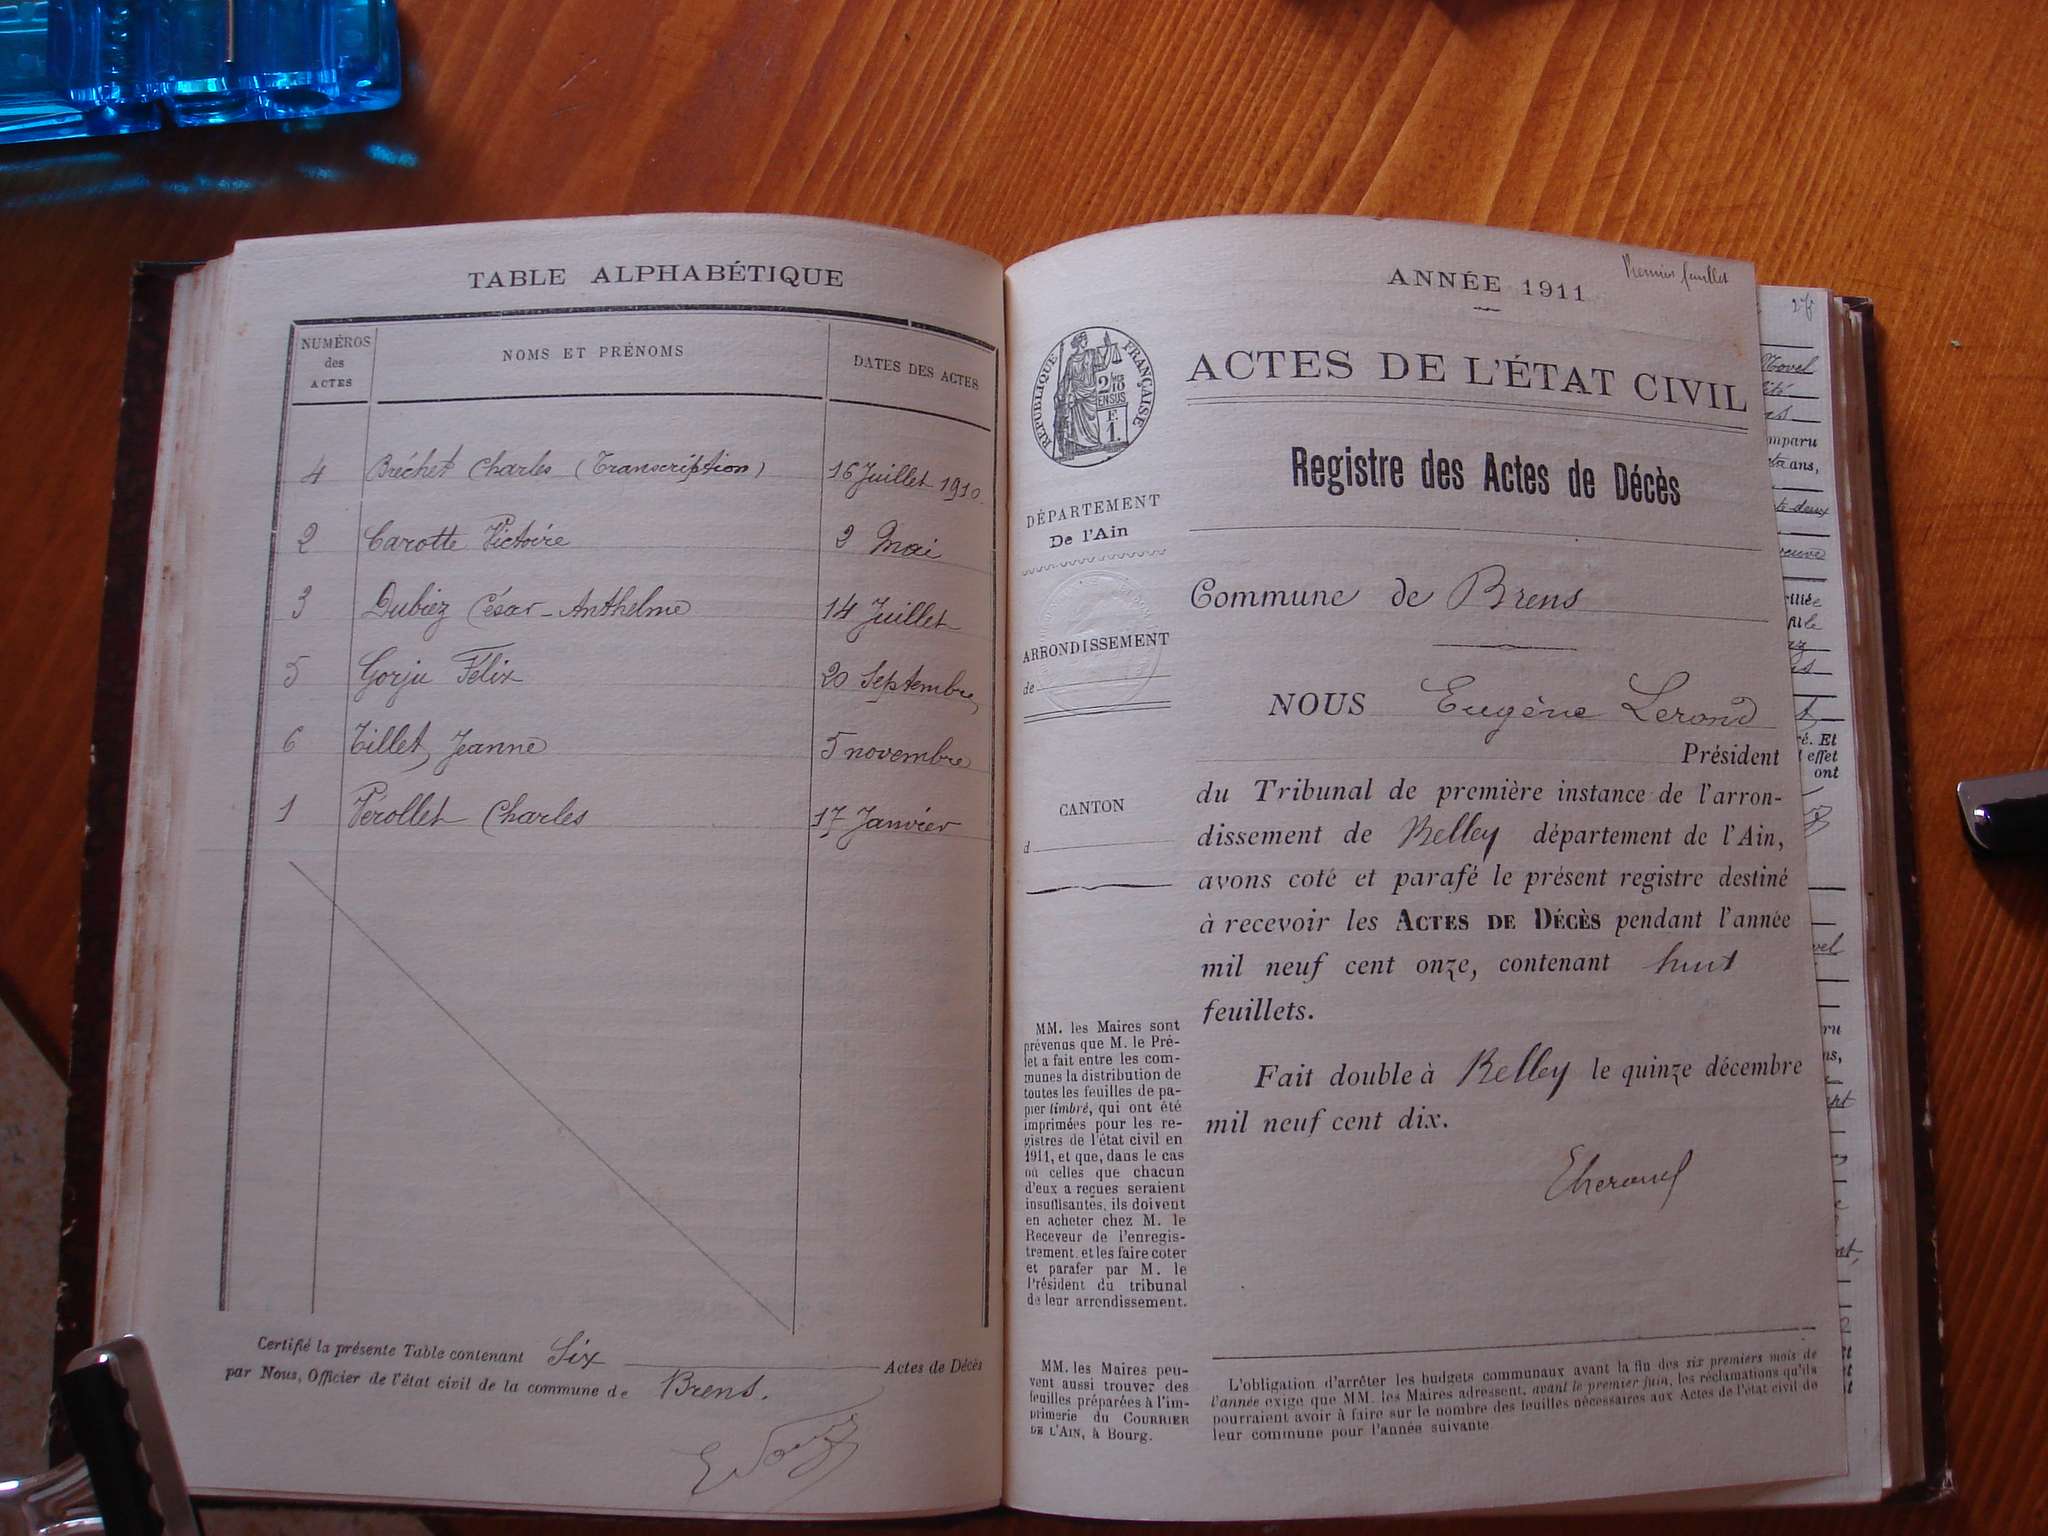 TABLE ALPHABÉTIQUE
NUMÉROS
des
ACTES
NOMS ET PRÉNOMS
DATES DES ACTES
4 Bréchet Charles (Transcription) 16 Juillet 1910
2 Carotte Victoire 2 Mai
3 Dubiez César-Anthelme 14 Juillet
5 Gorju Félix 20 Septembre
6 Tillet Jeanne 5 novembre
1 Vérollet Charles 17 Janvier
Certifié la présente Table contenant Six Actes de Décès
par Nous, Officier de l'état civil de la commune de Brens.
Premier feuillet
ANNÉE 1911
RÉPUBLIQUE FRANÇAISE
ACTES DE L'ÉTAT CIVIL
Registre des Actes de Décès
DÉPARTEMENT
De l'Ain
ARRONDISSEMENT
de
CANTON
d
Commune de Brens
NOUS Eugène Lerond
Président
du Tribunal de première instance de l'arron-
dissement de Belley département de l'Ain,
avons coté et parafé le présent registre destiné
à recevoir les ACTES DE DÉCÈS pendant l'année
mil neuf cent onze, contenant huit
feuillets.
Fait double à Belley le quinze décembre
mil neuf cent dix.
MM. les Maires sont
prévenus que M. le Pré-
fet a fait entre les com-
munes la distribution de
toutes les feuilles de pa-
pier timbré, qui ont été
imprimées pour les re-
gistres de l'état civil en
1911, et que, dans le cas
où celles que chacun
d'eux a reçues seraient
insuffisantes, ils doivent
en acheter chez M. le
Receveur de l'enregis-
trement, et les faire coter
et parafer par M. le
Président du tribunal
de leur arrondissement.
MM. les Maires peu-
vent aussi trouver des
feuilles préparées à l'im-
primerie du COURRIER
DE L'AIN, à Bourg.
L'obligation d'arrêter les budgets communaux avant la fin des six premiers mois de
l'année exige que MM. les Maires adressent, avant le premier juin, les réclamations qu'ils
pourraient avoir à faire sur le nombre des feuilles nécessaires aux Actes de l'état civil de
leur commune pour l'année suivante.